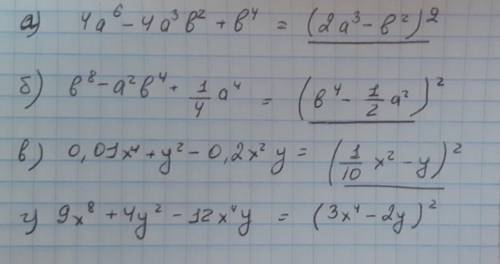 а) 4a⁶ - 4a³b² + b⁴ = (2a³ - b²)²
б) b⁸ - a²b⁴ + 1/4 a⁴ = (b⁴ - 1/2 a²)²
в) 0,01x⁴ + y² - 0,2x²y = (1/10 x² - y)²
г) 9x⁸ + 4y² - 12x⁴y = (3x⁴ - 2y)²